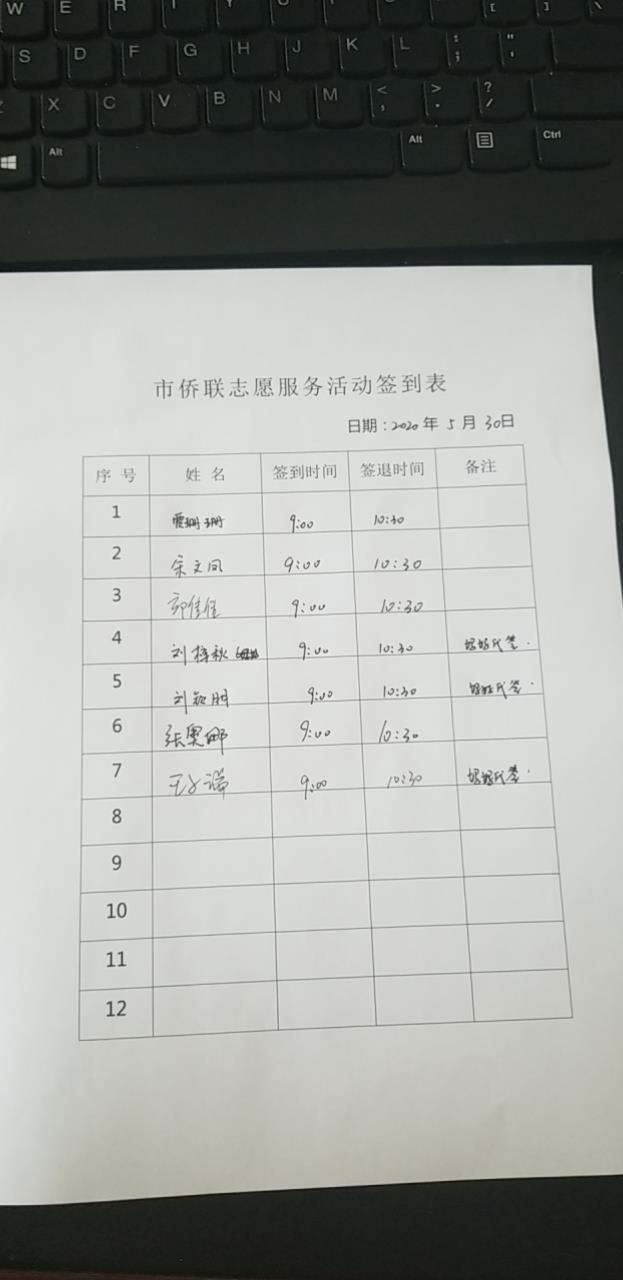 W E R T Y U I [ ] \
S D F G H J K L : ; " '
Z X C V B N M < , > . ? /
Alt Alt Ctrl
市侨联志愿服务活动签到表
日期：2020 年 5 月 30日
序 号 姓 名 签到时间 签退时间 备注
1 9:00 10:30
2 宋文凤 9:00 10:30
3 郭佳佳 9:00 10:30
4 刘梓秋 9:00 10:30 妈妈代签.
5 刘颖朋 9:00 10:30 妈妈代签.
6 张奥娜 9:00 10:30
7 9:00 10:30 妈妈代签.
8
9
10
11
12